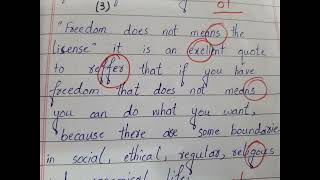 (3) of
"Freedom does not means the
lisense" it is an exellent quote
to reffer that if you have
freedom that does not means
you can do what you want,
because there are some boundaries
in social, ethical, regular, religous
life